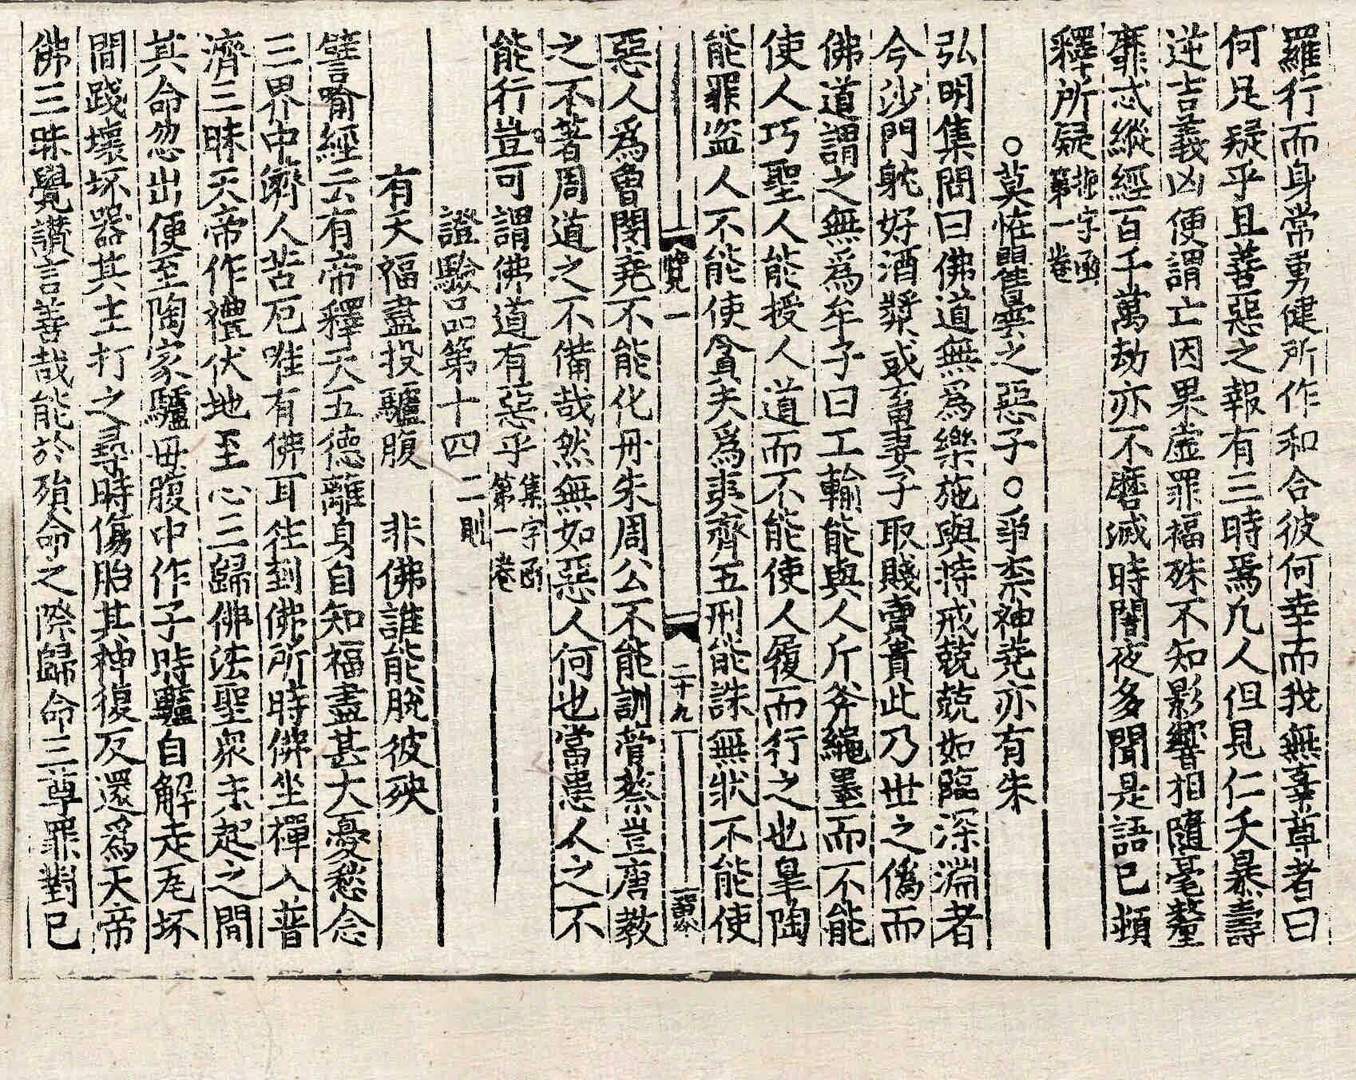 羅行而身常勇健所作和合彼何幸而我無辜尊者曰
何足疑乎且善惡之報有三時焉凡人但見仁夭暴壽
逆吉義凶便謂亡因果虛罪福殊不知影響相隨毫釐
靡忒縱經百千萬劫亦不磨滅時闍夜多聞是語已頓
釋所疑 第一卷
○莫恠瞿曇之惡子○爭柰神堯亦有朱
弘明集問曰佛道無爲樂施與持戒兢兢如臨深淵者
今沙門躭好酒漿或畜妻子取賤賣貴此乃世之僞而
佛道謂之無爲牟子曰工輸能與人斤斧繩墨而不能
使人巧聖人能授人道而不能使人履而行之也臯陶
能罪盗人不能使貪夫爲夷齊五刑能誅無狀不能使
覽一 二十九
惡人爲曾閔堯不能化丹朱周公不能訓管蔡豈唐教
之不著周道之不備哉然無如惡人何也當患人之不
能行豈可謂佛道有惡乎 集字函第一卷
證驗品第十四 二則
有天福盡投驢腹 非佛誰能脫彼殃
譬喻經云有帝釋天五德離身自知福盡甚大憂愁念
三界中濟人苦厄唯有佛耳往到佛所時佛坐禪入普
濟三昧天帝作禮伏地至心三歸佛法聖衆未起之間
其命忽出便至陶家驢母腹中作子時驢自解走瓦坏
間踐壞坏器其主打之尋時傷胎其神復反還爲天帝
佛三昧覺讚言善哉能於殞命之際歸命三尊罪對已